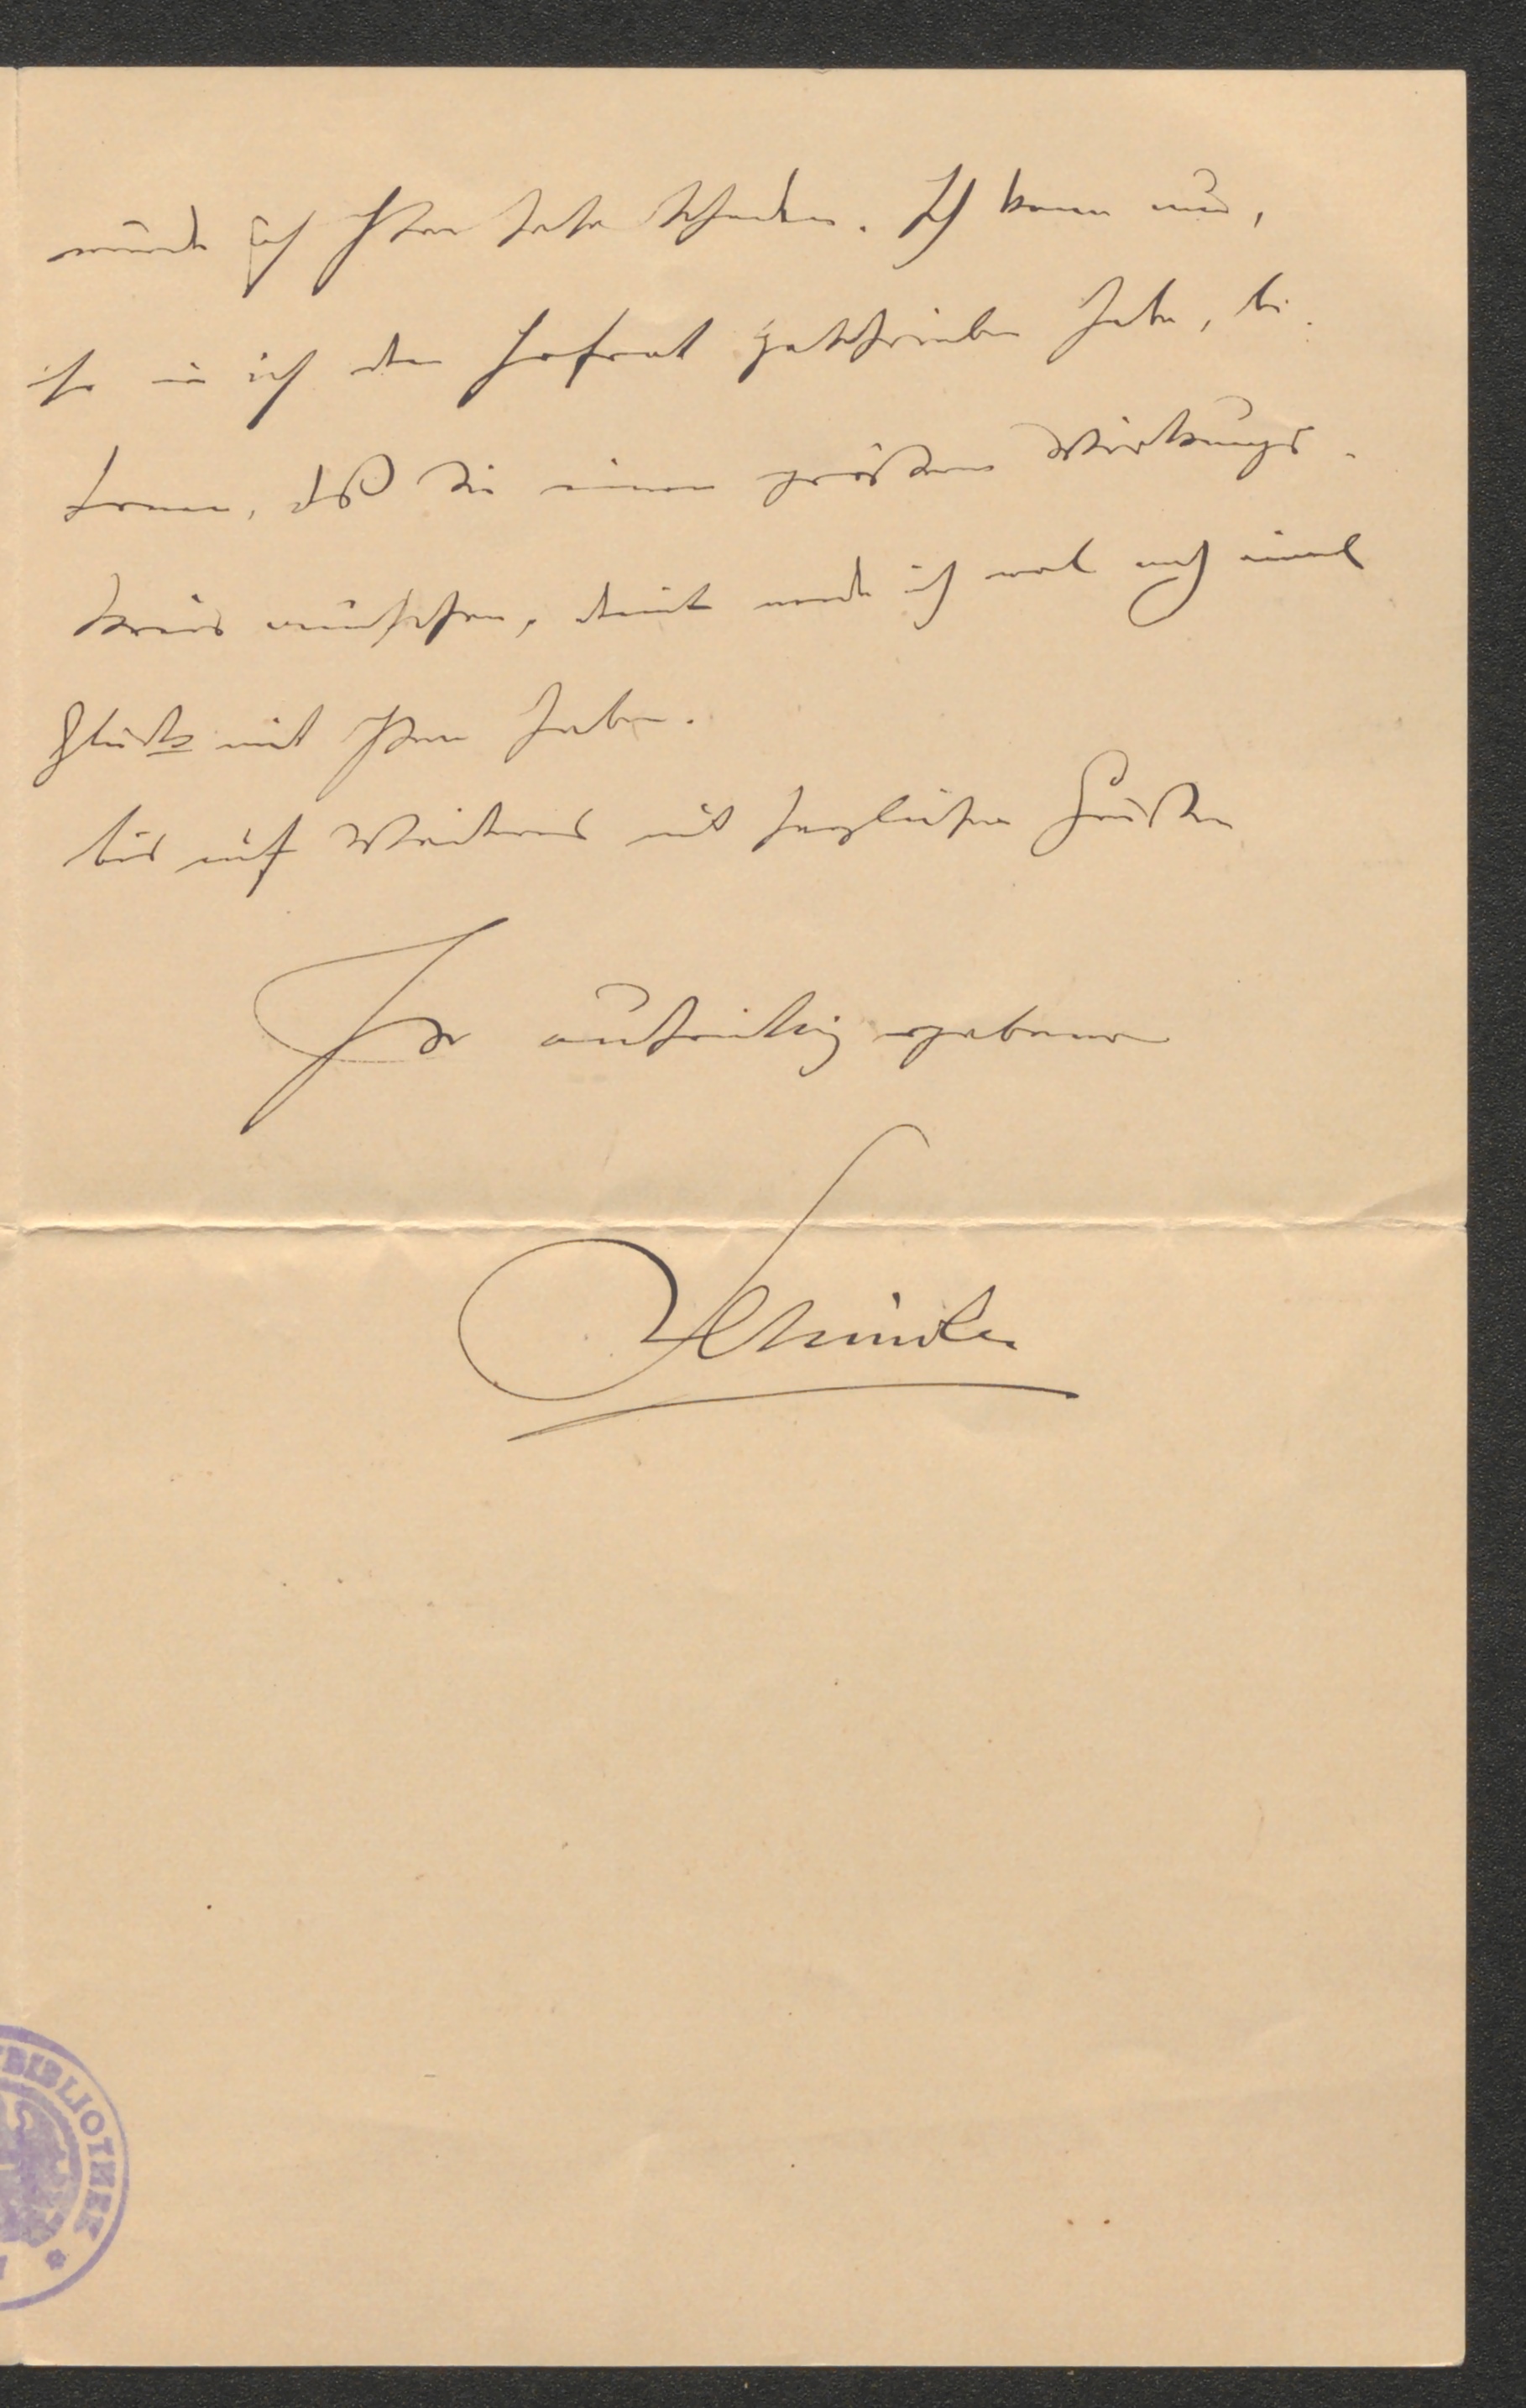 würde ich Ihnen sehr schaden. Ich kann nur,
ich dem Hofrat geschrieben habe, be-
tonen, daß Sie einen größeren Wirkungs-
kreis wünschen, damit werde ich wol auch einmal
Glück mit Ihnen haben.
bis auf Weiteres mit herzlichen Grüßen
Ihr aufrichtig ergebener
BIBLIOTHEK